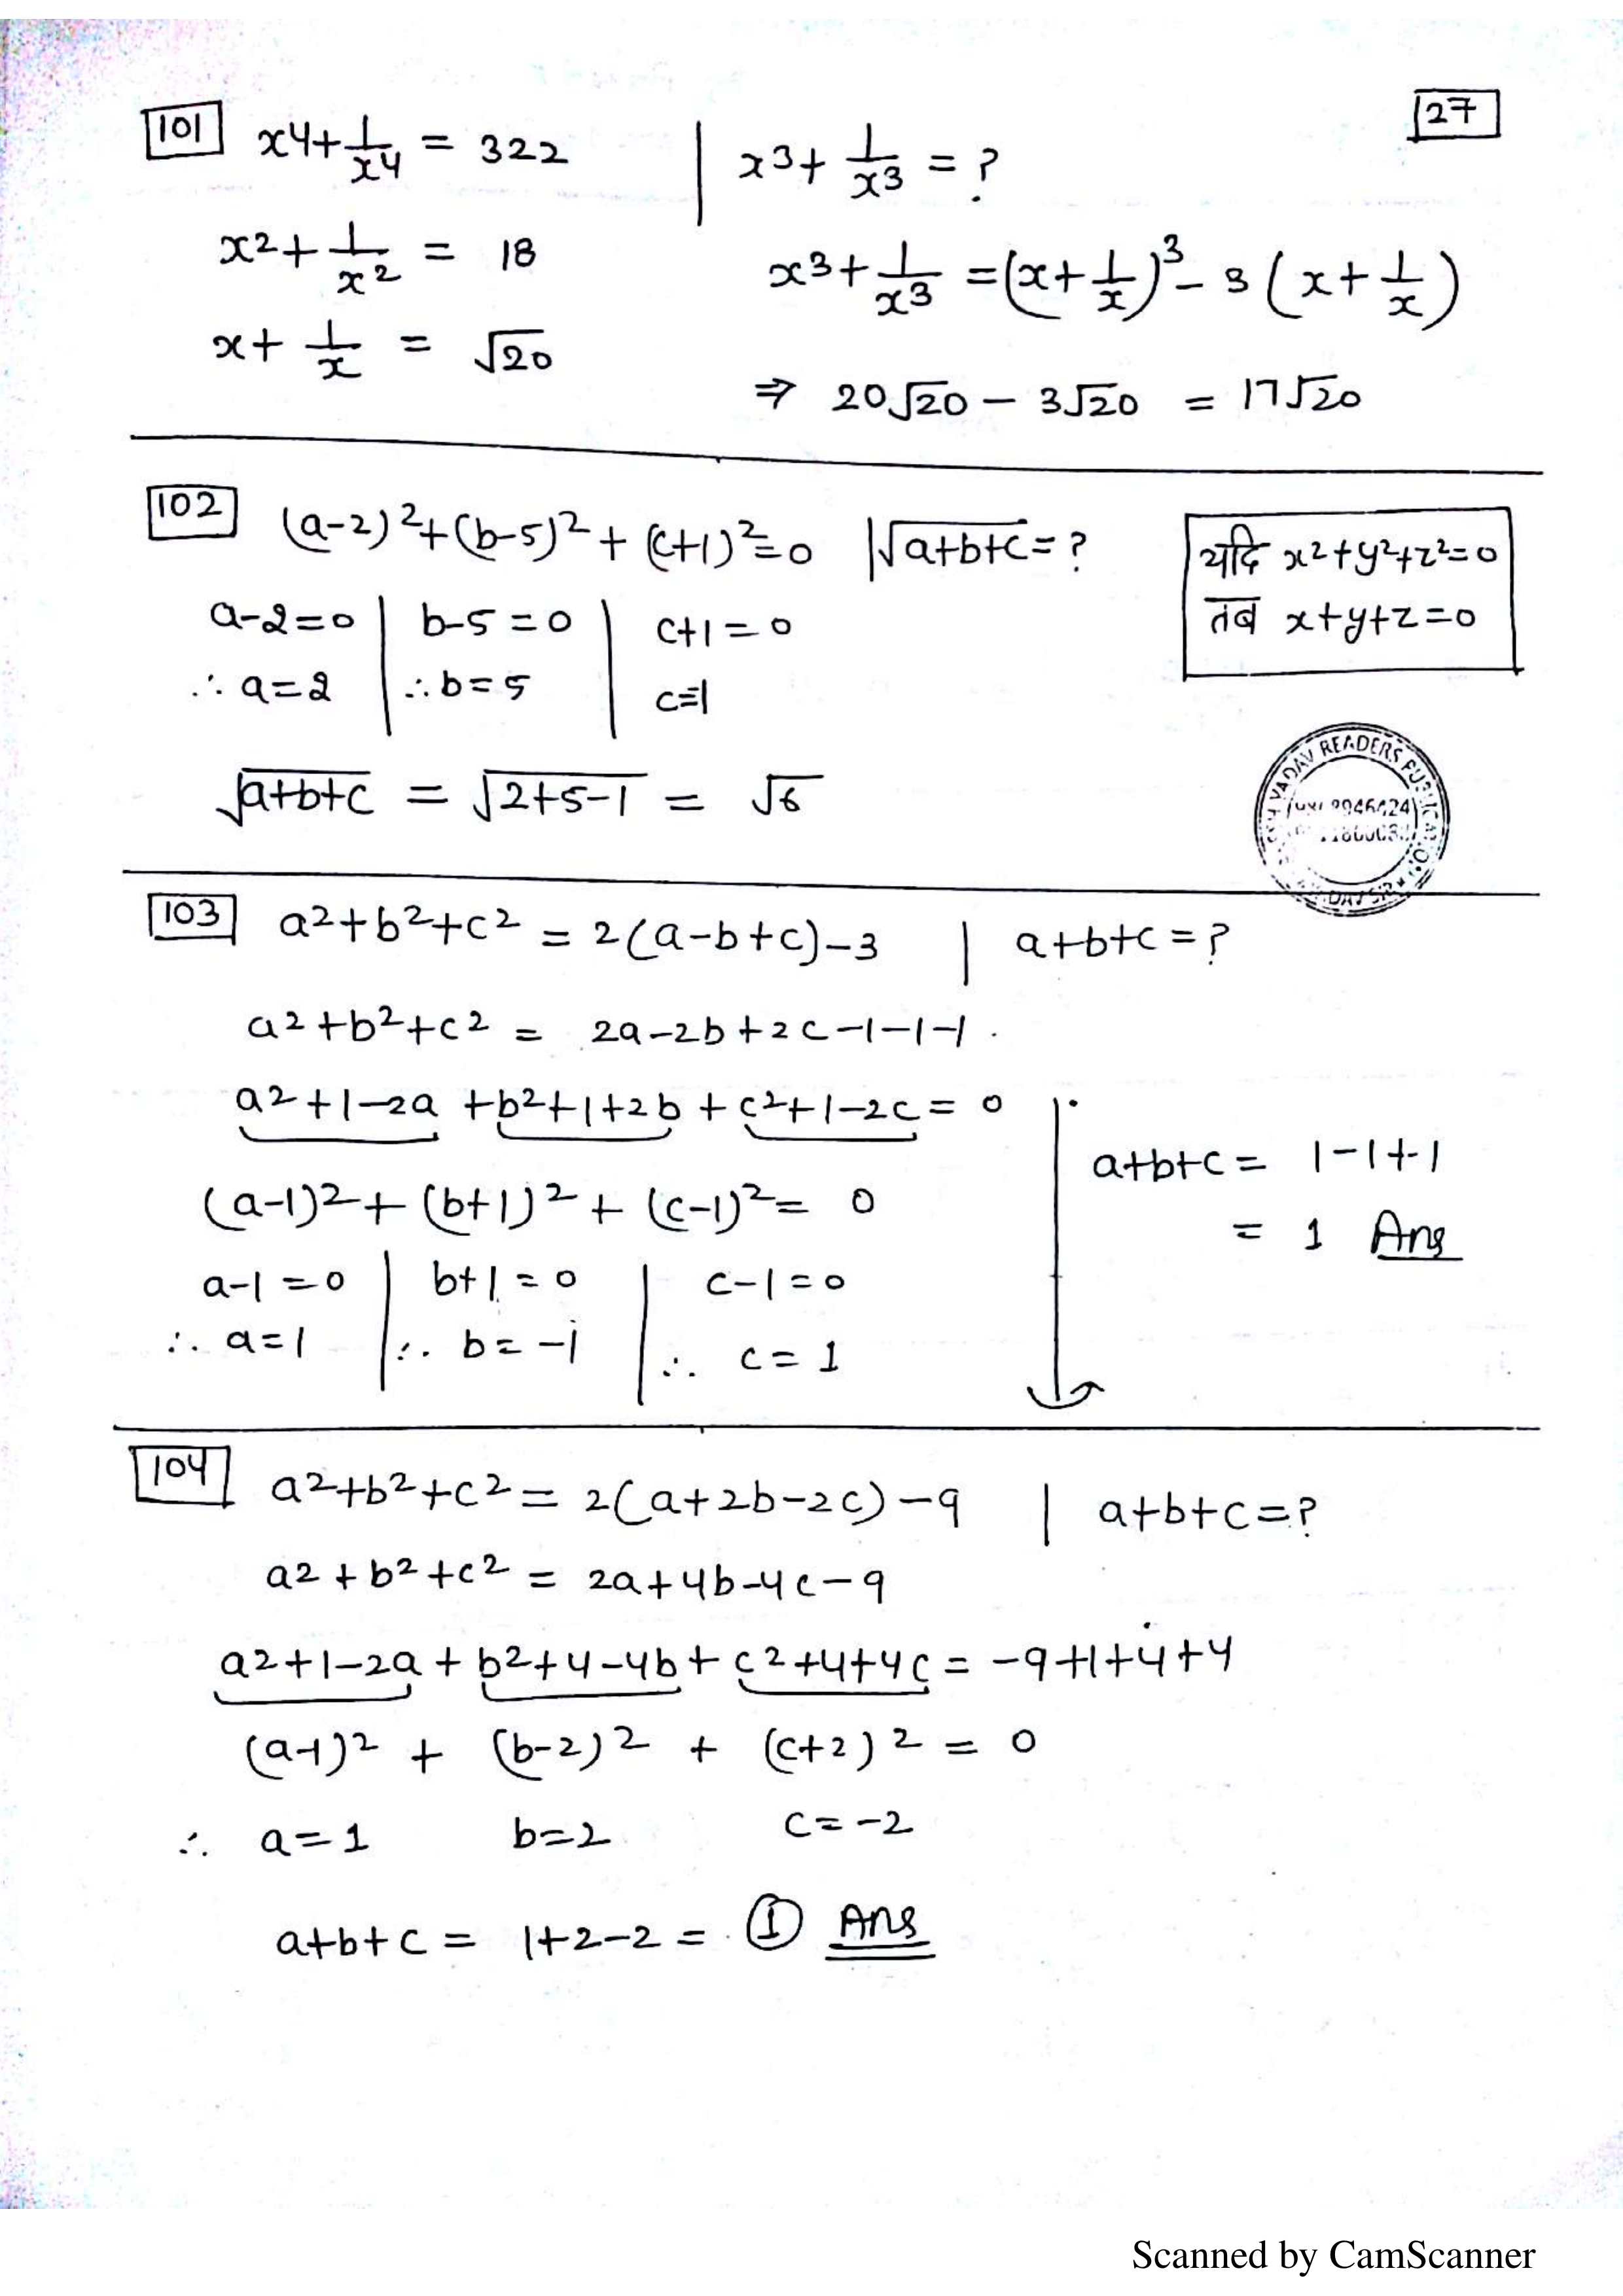 27
101 x⁴+1/x⁴ = 322 | x³+1/x³ = ?
x²+1/x² = 18
x³+1/x³ = (x+1/x)³ - 3(x+1/x)
x+1/x = √20
⇒ 20√20 - 3√20 = 17√20
102 (a-2)²+(b-5)²+(c+1)²=0 | √a+b+c = ?
यदि x²+y²+z²=0
तब x+y+z=0
a-2=0 | b-5=0 | c+1=0
∴ a=2 | ∴ b=5 | c=-1
√a+b+c = √2+5-1 = √6
YADAV READERS
103 a²+b²+c² = 2(a-b+c)-3 | a+b+c=?
a²+b²+c² = 2a-2b+2c-1-1-1
a²+1-2a+b²+1+2b+c²+1-2c=0
(a-1)²+(b+1)²+(c-1)²=0
a-1=0 | b+1=0 | c-1=0
∴ a=1 | ∴ b=-1 | ∴ c=1
a+b+c = 1-1+1
= 1 Ans
104 a²+b²+c²=2(a+2b-2c)-9 | a+b+c=?
a²+b²+c² = 2a+4b-4c-9
a²+1-2a+b²+4-4b+c²+4+4c=-9+1+4+4
(a-1)² + (b-2)² + (c+2)² = 0
∴ a=1 b=2 c=-2
a+b+c = 1+2-2 = 1 Ans
Scanned by CamScanner